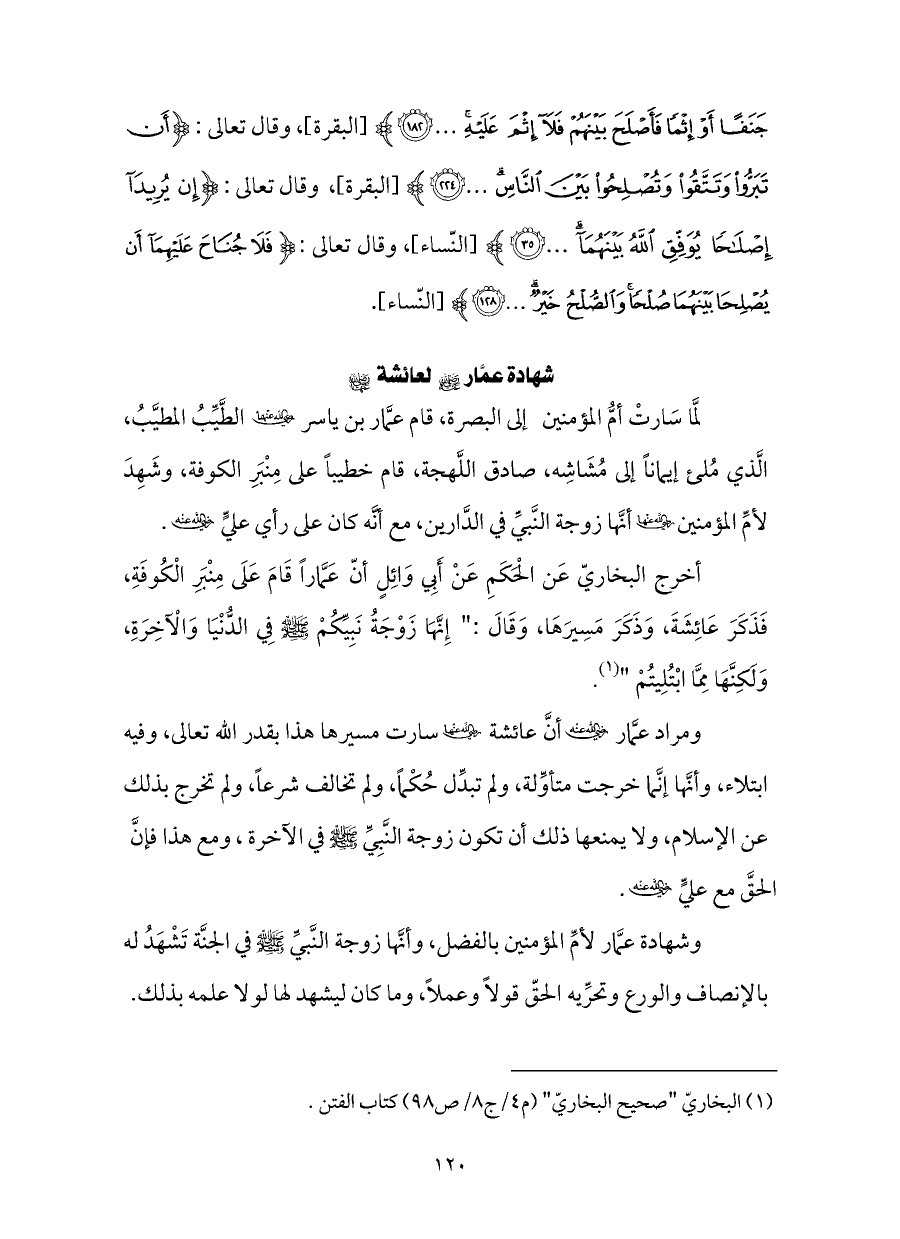 جَنَفًا أَوْ إِثْمًا فَأَصْلَحَ بَيْنَهُمْ فَلَآ إِثْمَ عَلَيْهِ ۚ ... ﴿١٨٢﴾ ﴾ [البقرة]، وقال تعالى : ﴿ أَن
تَبَرُّوا۟ وَتَتَّقُوا۟ وَتُصْلِحُوا۟ بَيْنَ ٱلنَّاسِ ۗ ... ﴿٢٢٤﴾ ﴾ [البقرة]، وقال تعالى : ﴿ إِن يُرِيدَآ
إِصْلَٰحًا يُوَفِّقِ ٱللَّهُ بَيْنَهُمَآ ۗ ... ﴿٣٥﴾ ﴾ [النّساء]، وقال تعالى : ﴿ فَلَا جُنَاحَ عَلَيْهِمَآ أَن
يُصْلِحَا بَيْنَهُمَا صُلْحًا ۚ وَٱلصُّلْحُ خَيْرٌ ۗ ... ﴿١٢٨﴾ ﴾ [النّساء].
شهادة عمَّار ﵁ لعائشة ﵂
لمَّا سَارتْ أمُّ المؤمنين إلى البصرة، قام عمَّار بن ياسر ﵄ الطَّيِّبُ المطيَّبُ،
الَّذي مُلئ إيماناً إلى مُشَاشِه، صادق اللَّهجة، قام خطيباً على مِنْبَرِ الكوفة، وشَهِدَ
لأمِّ المؤمنين ﵂ أنَّها زوجة النَّبيِّ في الدَّارين، مع أنَّه كان على رأي عليٍّ ﵁ .
أخرج البخاريّ عَن الْحَكَمِ عَنْ أَبِي وَائِلٍ أنّ عَمَّاراً قَامَ عَلَى مِنْبَرِ الْكُوفَةِ،
فَذَكَرَ عَائِشَةَ، وَذَكَرَ مَسِيرَهَا، وَقَالَ :" إِنَّهَا زَوْجَةُ نَبِيِّكُمْ ﷺ فِي الدُّنْيَا وَالْآخِرَةِ،
وَلَكِنَّهَا مِمَّا ابْتُلِيتُمْ "(١).
ومراد عمَّار ﵁ أنَّ عائشة ﵂ سارت مسيرها هذا بقدر الله تعالى، وفيه
ابتلاء، وأنَّها إنَّما خرجت متأوِّلة، ولم تبدِّل حُكْماً، ولم تخالف شرعاً، ولم تخرج بذلك
عن الإسلام، ولا يمنعها ذلك أن تكون زوجة النَّبيِّ ﷺ في الآخرة ، ومع هذا فإنَّ
الحقَّ مع عليٍّ ﵁ .
وشهادة عمَّار لأمِّ المؤمنين بالفضل، وأنَّها زوجة النَّبيِّ ﷺ في الجنَّة تَشْهَدُ له
بالإنصاف والورع وتحرِّيه الحقّ قولاً وعملاً، وما كان ليشهد لها لولا علمه بذلك.
(١) البخاريّ "صحيح البخاريّ" (م٤/ ج٨/ ص٩٨) كتاب الفتن .
١٢٠